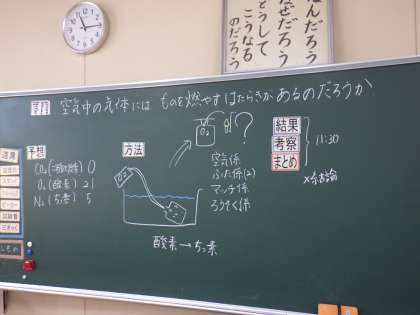 なんだろう
なぜだろう
どうして
こうなる
のだろう
学習 空気中の気体には ものを燃やすはたらきがあるのだろうか
予想
CO₂(二酸化炭素) 0
O₂(酸素) 21
N₂(ちっ素) 5
方法
O₂
?
空気係
ふた係(2)
マッチ係
ろうそく係
酸素→ちっ素
結果
考察
まとめ
11:30
×結論